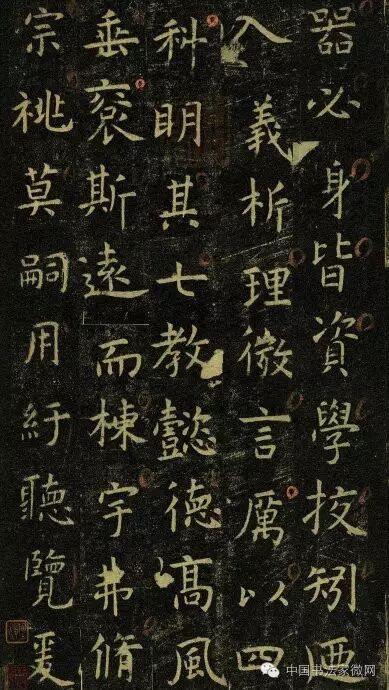 器必身皆資學挍矧迺
入義析理微言厲以四
科明其七教懿德髙風
垂裒斯遠而棟宇弗脩
宗祧莫嗣用紆聽覽爰
中国书法家微网